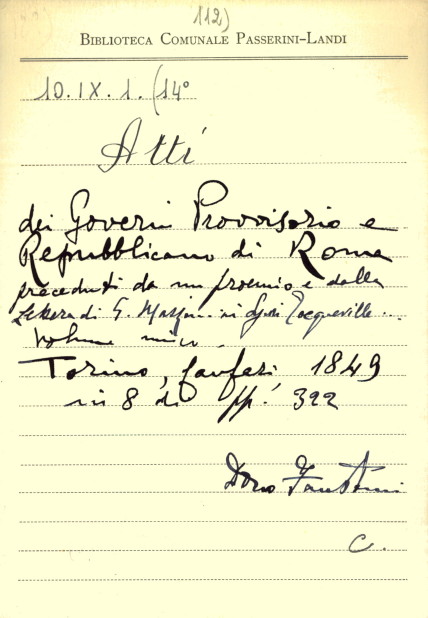 112)
BIBLIOTECA COMUNALE PASSERINI-LANDI
10. IX. 1. (14°
Atti
dei Governi Provvisorio e
Repubblicano di Roma
preceduti da un proemio e dalla
Lettera di G. Mazzini ai Sigri Tocqueville..
Volume unico.
Torino, 1849
in 8 di pp. 322
Dono Faustini
C.